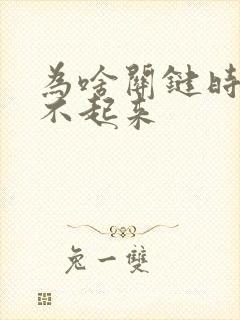 為啥關鍵時
不起来
兔一雙